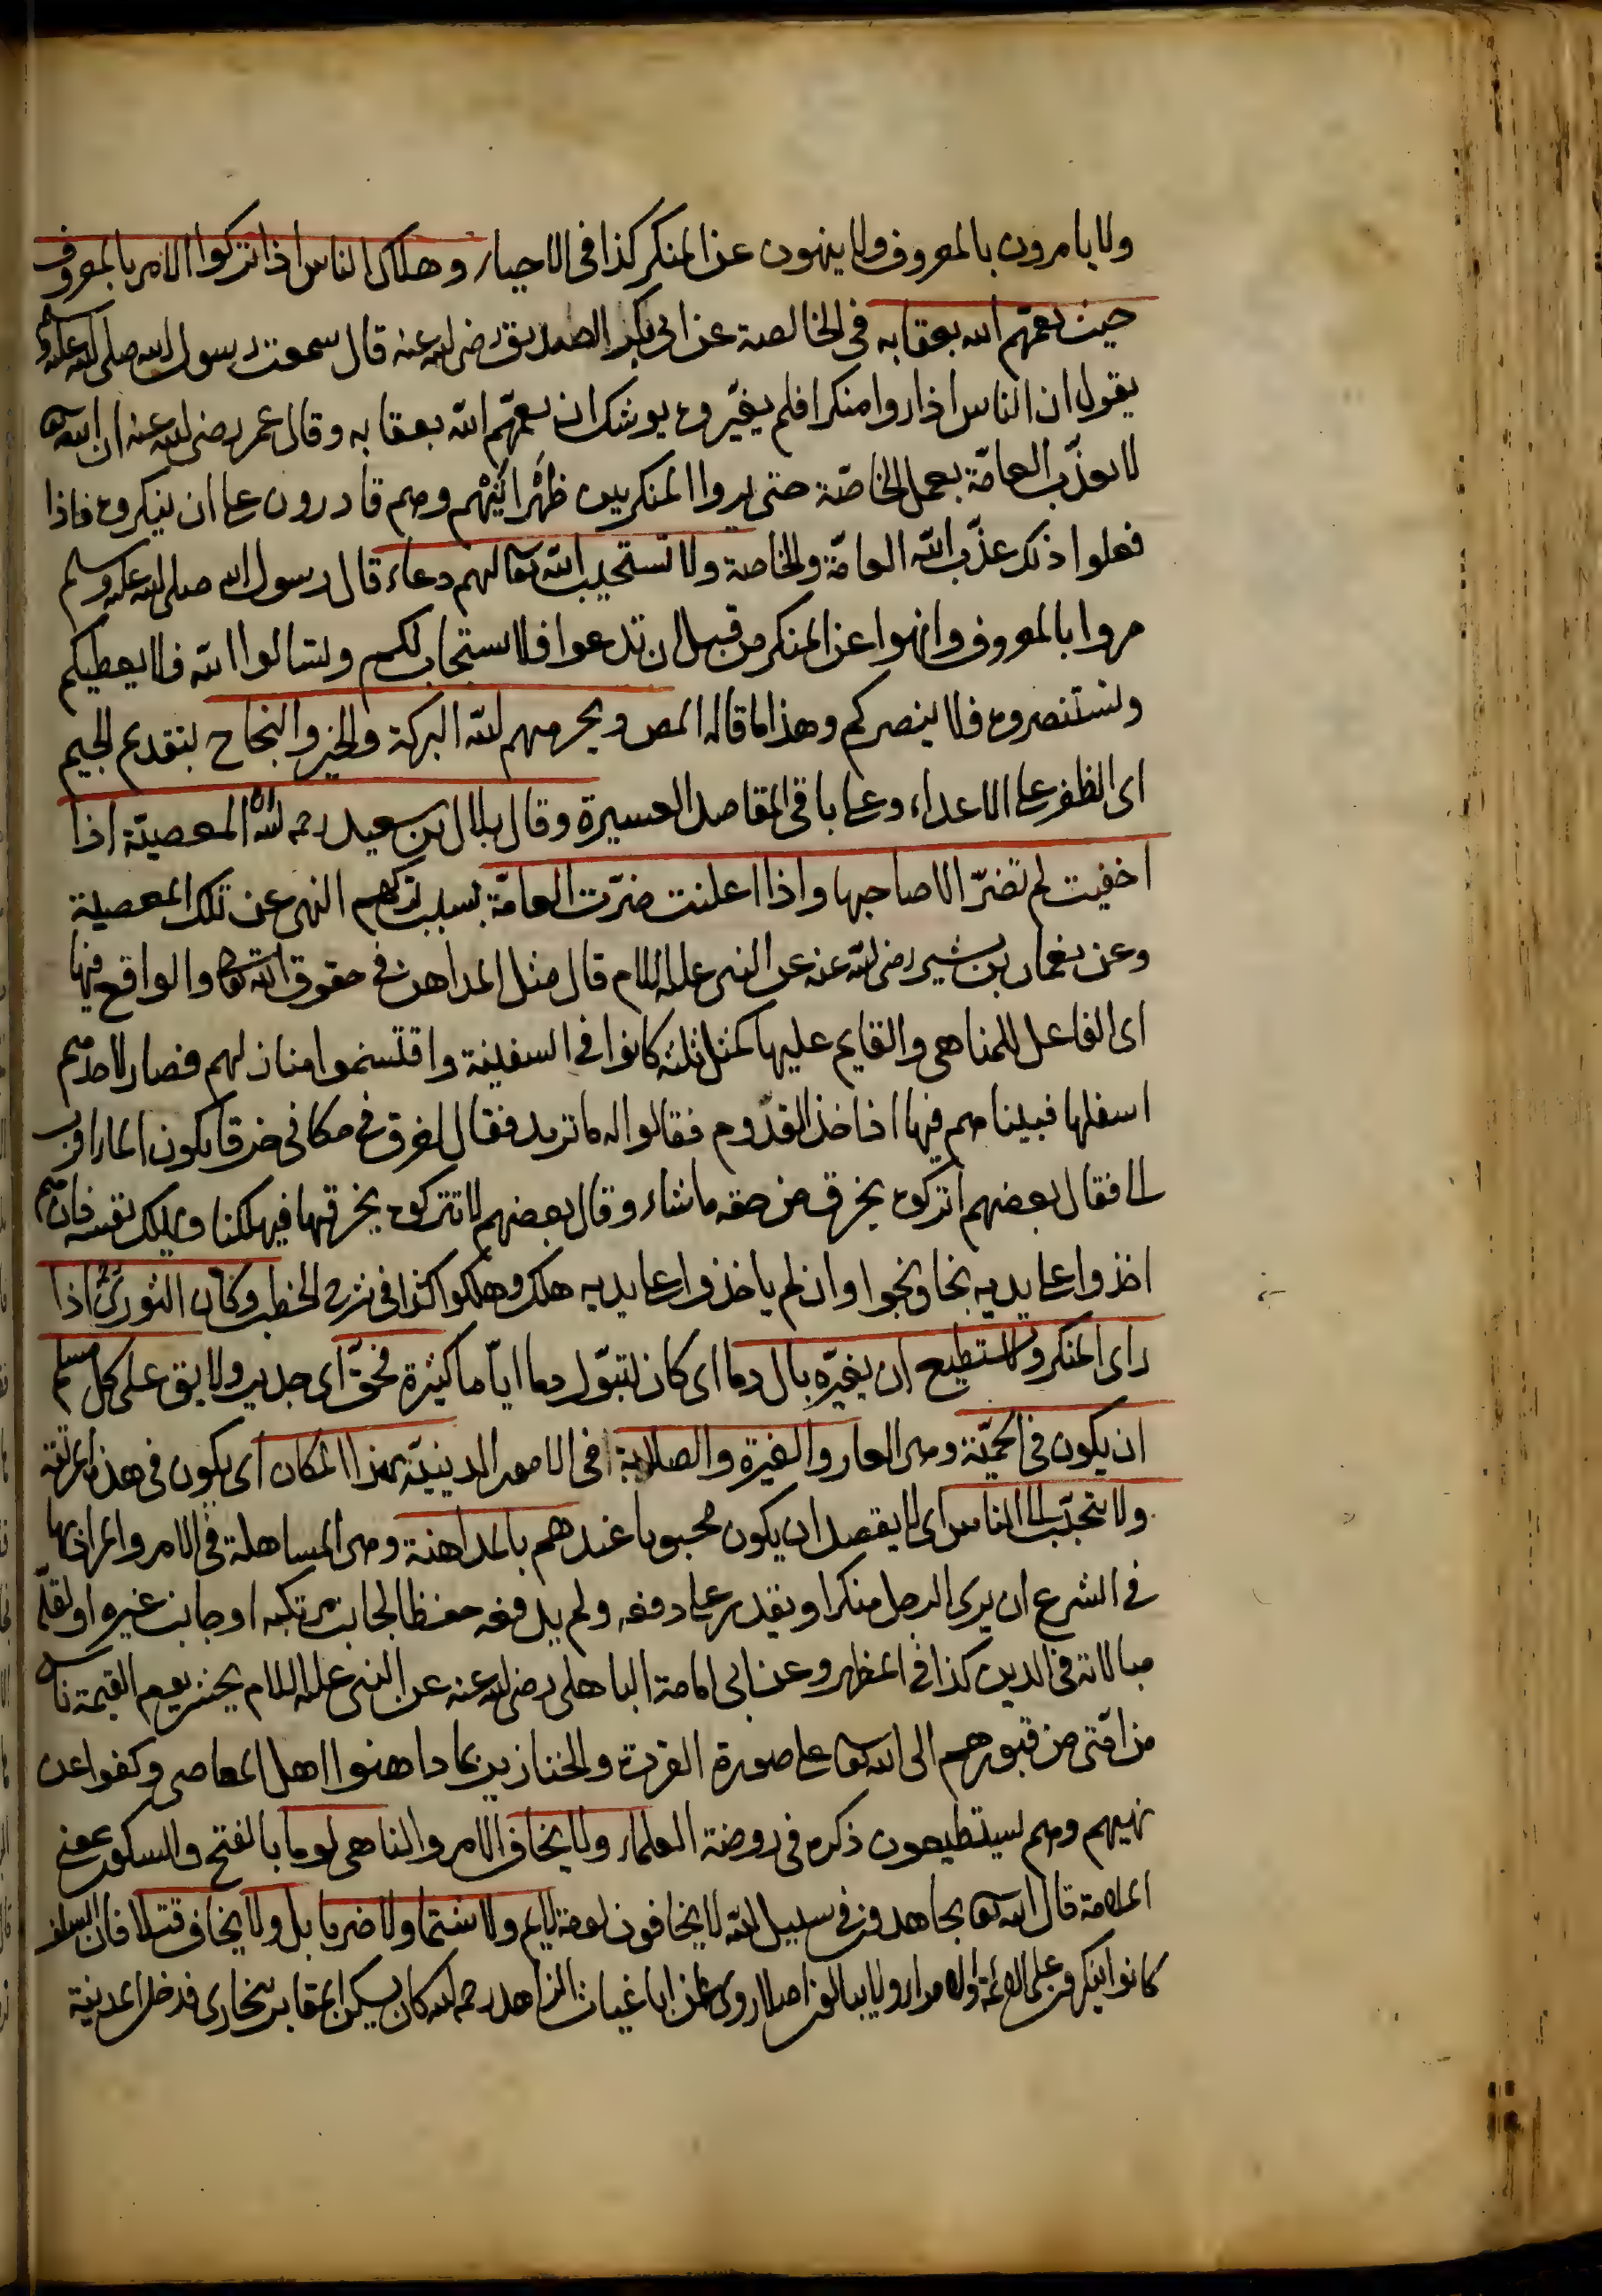 ولا يامرون بالمعروف ولا ينهون عن المنكر كذا فى الاحياء وهلاك الناس اذا تركوا الامر بالمعروف
حيث يعمّهم الله بعقابه فى الخالصة عن ابى بكر الصديق رضى الله عنه قال سمعت رسول الله صلى الله عليه وسلم
يقول ان الناس اذا راوا منكرا فلم يغيّروه يوشك ان يعمّهم الله بعقابه وقال عمر رضى الله عنه ان الله تعالى
لا يعذّب العامّة بعمل الخاصّة حتى يروا المنكر بين ظَهْرانَيْهم وهم قادرون على ان ينكروه فاذا
فعلوا ذلك عذّب الله العامّة والخاصة ولا تستجيب الله تعالى لهم دعاء قال رسول الله صلى الله عليه وسلم
مروا بالمعروف وانهوا عن المنكر من قبل ان تدعوا فلا يستجاب لكم وتسالوا الله فلا يعطيكم
وتستنصروه فلا ينصركم وهذا ما قاله المص ويحرمهم الله البركة والخير والنجاح بتقديم الجيم
اى الظفر على الاعداء وعلى باقى المقاصد العسيرة وقال بلال بن سعيد رحمه الله ان المعصيّة اذا
اخفيت لم تضرّ الا صاحبها واذا اعلنت ضرّت العامّة بسبب تركهم النهى عن تلك المعصية
وعن نعمان بن بشير رضى الله عنه عن النبى عليه السلام قال مثل المداهن فى حقوق الله تعالى والواقع فيها
اى الفاعل للمناهى والقايم عليها كمثل ثلثة كانوا فى السفينة واقتسموا منازلهم فصار لاحدهم
اسفلها فبينا هم فيها اذ اخذ القدّوم فقالوا له ما تريد فقال اخرق فى مكانى خرقا يكون الماء اقرب
الى فقال بعضهم اتركوه يخرق من حقه ما شاء وقال بعضهم لا تتركوه يخرقها فيهلكنا ويهلك نفسه فان هم
اخذوا على يديه نجا ونجوا وان لم ياخذوا على يديه هلك وهلكوا كذا فى شرح الخطب وكان الثورىّ اذا
راى المنكر ولا يستطيع ان يغيّره بال دما اى كان تبوّل دما ايّاما كثيرة فحقّ اى جدير ولايق على كل مسلم
ان يكون فى الحميّة وهى العار والغيرة والصلابة فى الامور الدينيّة بهذا المكان اى يكون فى هذه المرتبة
ولا يتحبّب الى الناس اى لا يقصد ان يكون محبوبا عندهم بالمداهنة وهى المساهلة فى الامر والمراد بها
فى الشرع ان يرى الرجل منكرا ويقدر على دفعه ولم يدفعه حفظا لجانب مرتكبه او جانب غيره او لقلّة
مبالاته فى الدين كذا فى المظهر وعن ابى امامة الباهلى رضى الله عنه عن النبى عليه السلام يحشر يوم القيمة ناس
من امّتى من قبورهم الى الله تعالى على صورة القردة والخنازير بما داهنوا اهل المعاصى وكفوا عن
نهيهم وهم يستطيعون ذكره فى روضة العلماء ولا يخاف الامر والناهى لوما بالفتح والسكون بمعنى
الملامة قال الله تعالى يجاهدون فى سبيل الله لا يخافون لومة لايم ولا شتما ولا ضربا بل ولا يخاف قتلا فان السلف
كانوا ينكرون على الائمة ولا يبالون اصلا روى ان ابا غياث الزاهد رحمه الله كان يسكن المقابر ببخارى فدخل المدينة